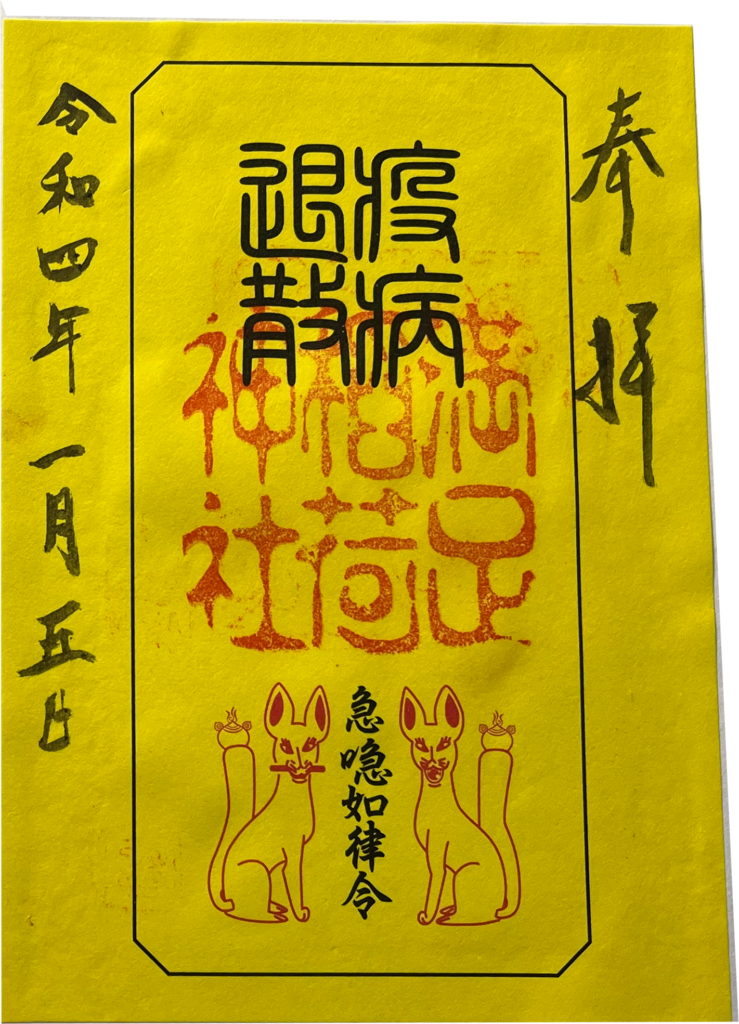 奉拝
疫病
退散
満足
稲荷
神社
急喼如律令
令和四年一月五日